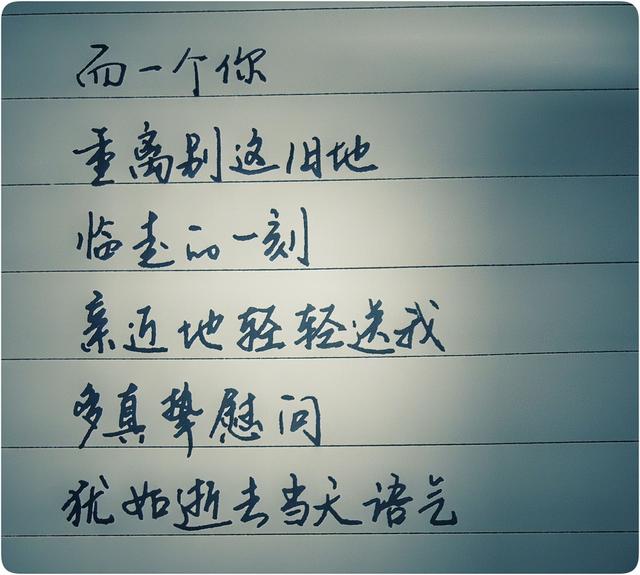 而一个你
重离别这旧地
临走的一刻
亲近地轻轻送我
多真挚慰问
犹如逝去当天语气